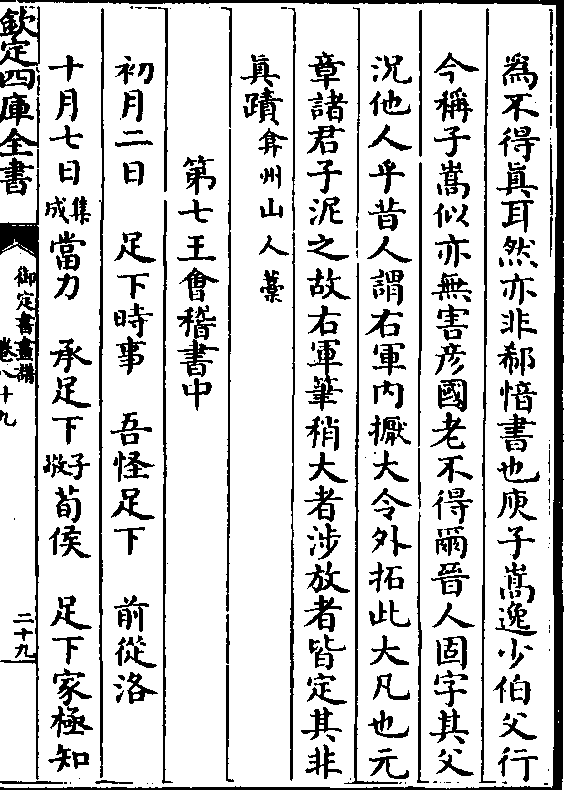 爲不得真耳然亦非郗愔書也庾子嵩逸少伯父行
今稱子嵩似亦無害彦國老不得爾晉人固字其父
況他人乎昔人謂右軍内擫大令外拓此大凡也元
章諸君子泥之故右軍筆稍大者涉放者皆定其非
真蹟弇州山人藁
第七王會稽書中
初月二日　足下時事　吾怪足下　前從洛
十月七日集成當力　承足下子牧荀侯　足下家極知
欽定四庫全書
御定書畫譜
卷八十九
二十九